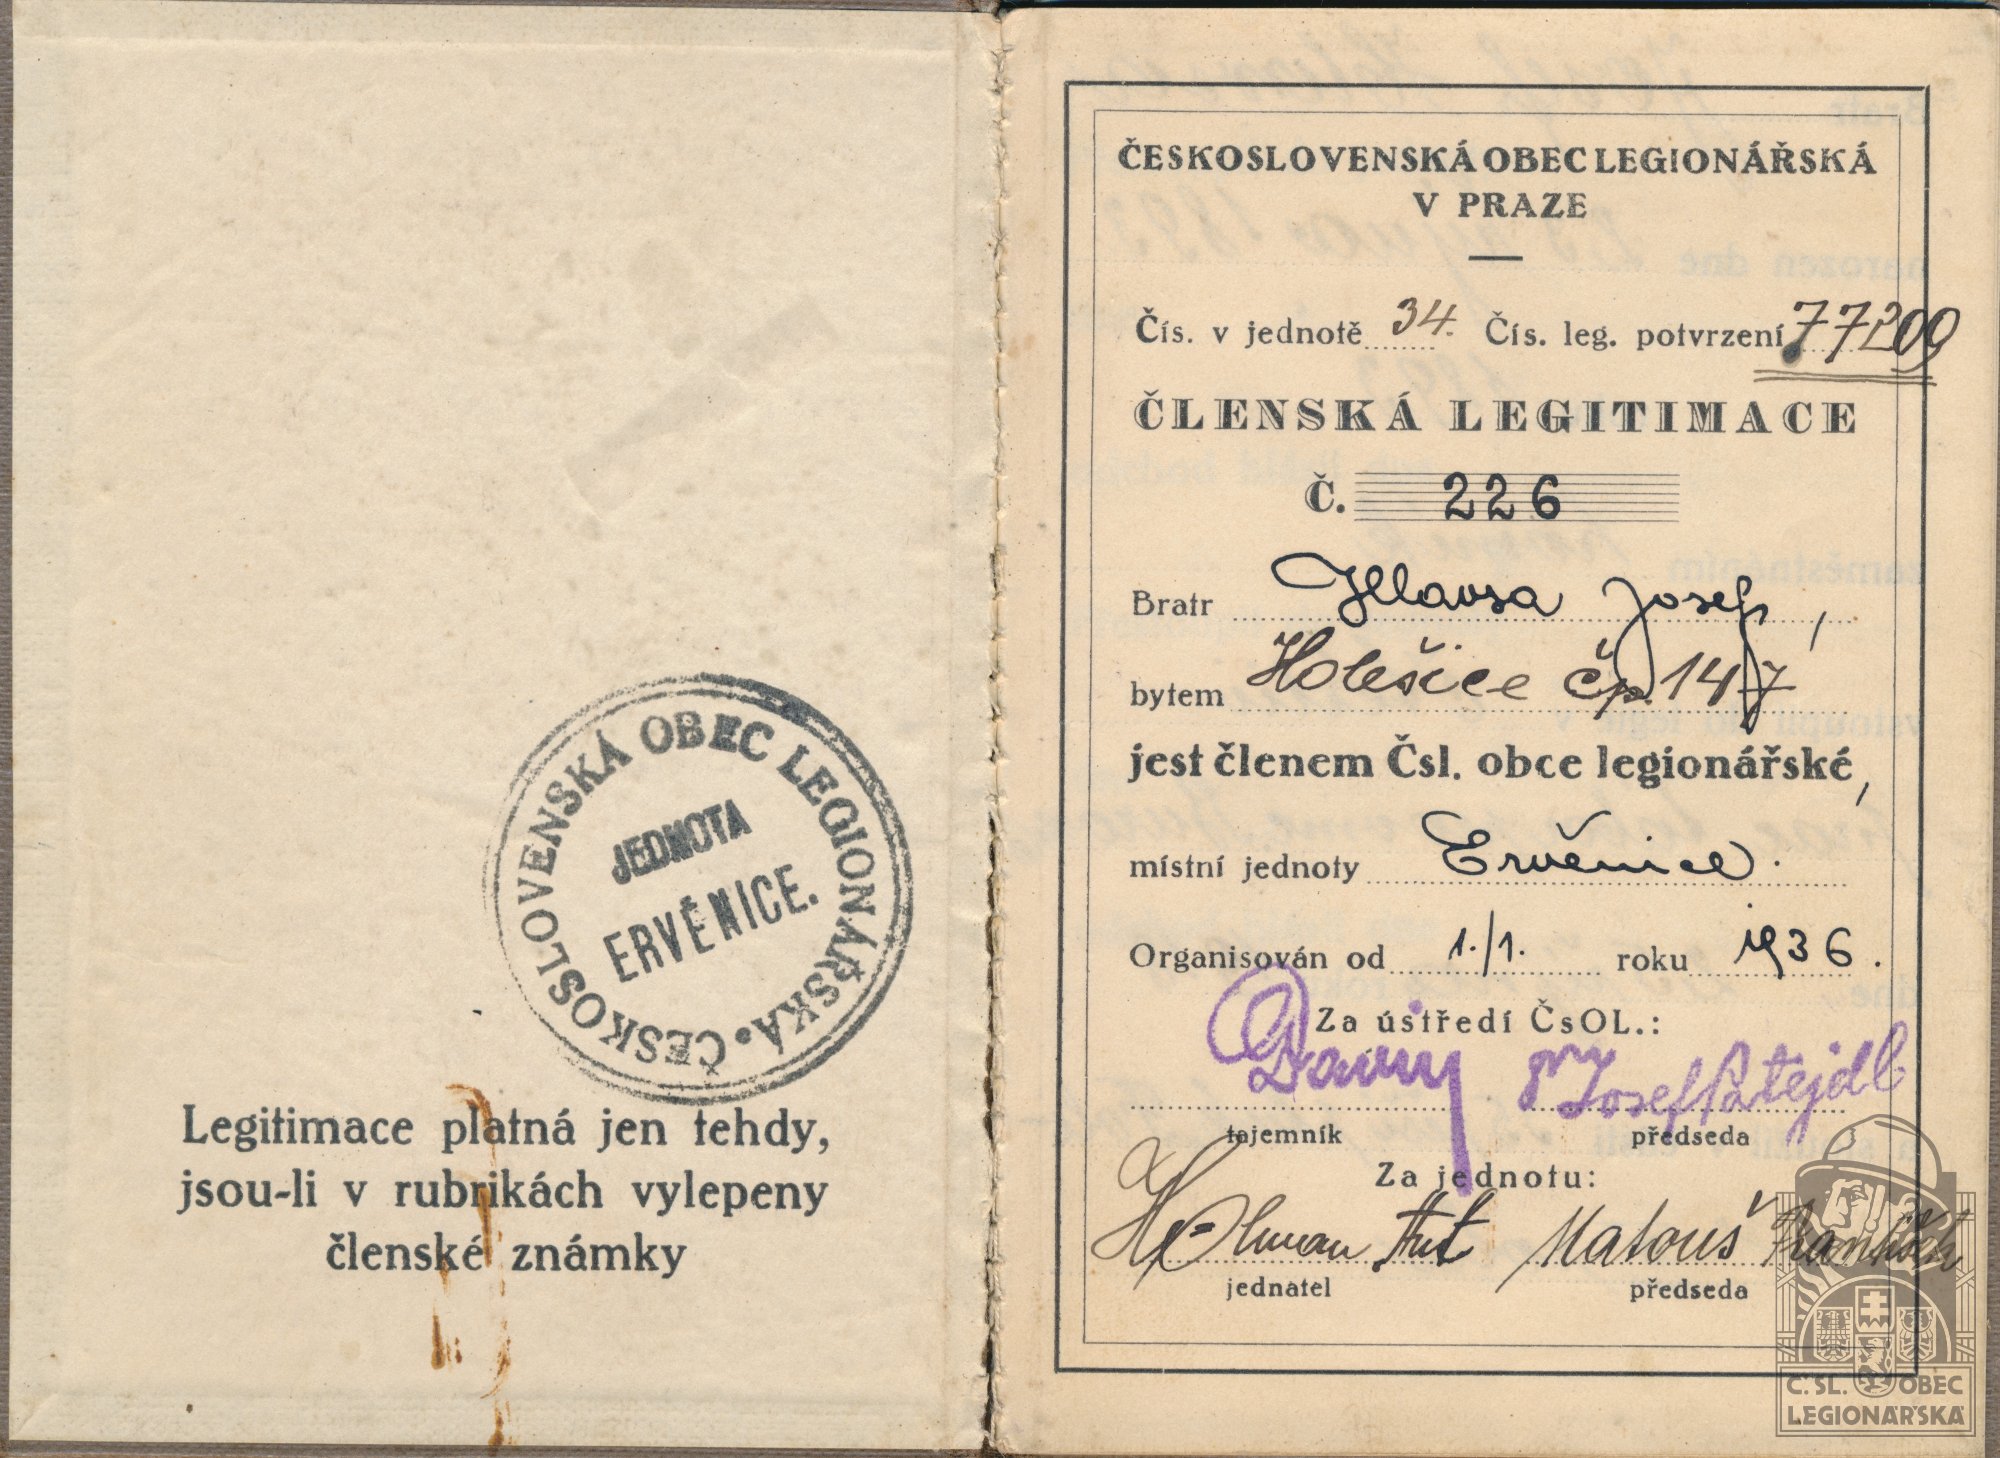 ČESKOSLOVENSKÁ OBEC LEGIONÁŘSKÁ
JEDNOTA
ERVĚNICE.
Legitimace platná jen tehdy,
jsou-li v rubrikách vylepeny
členské známky
ČESKOSLOVENSKÁ OBEC LEGIONÁŘSKÁ
V PRAZE
Čís. v jednotě 34. Čís. leg. potvrzení
ČLENSKÁ LEGITIMACE
Č. 226
Bratr Hlavsa Josef,
bytem Holešice čp. 147
jest členem Čsl. obce legionářské,
místní jednoty Ervěnice.
Organisován od 1./1. roku 1936.
Za ústředí ČsOL.:
Josef Patejdl
tajemník předseda
Za jednotu:
Matouš František
jednatel předseda
Č. SL. OBEC
LEGIONÁŘSKÁ